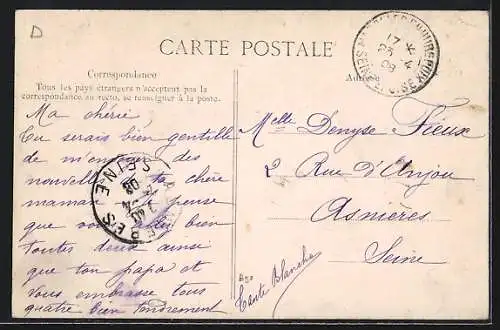 D
CARTE POSTALE
Correspondance
Tous les pays étrangers n'acceptent pas la
correspondance au recto, se renseigner à la poste.
Adresse
Ma chérie,
Tu serais bien gentille
de m'envoyer des
nouvelles ta chère
maman je pense
que vous allez bien
toutes deux ainsi
que ton papa et
vous embrasse tous
quatre bien tendrement
Tante Blanche
Melle Denyse Fieux
2 Rue d'Anjou
Asnières
Seine
SEINE